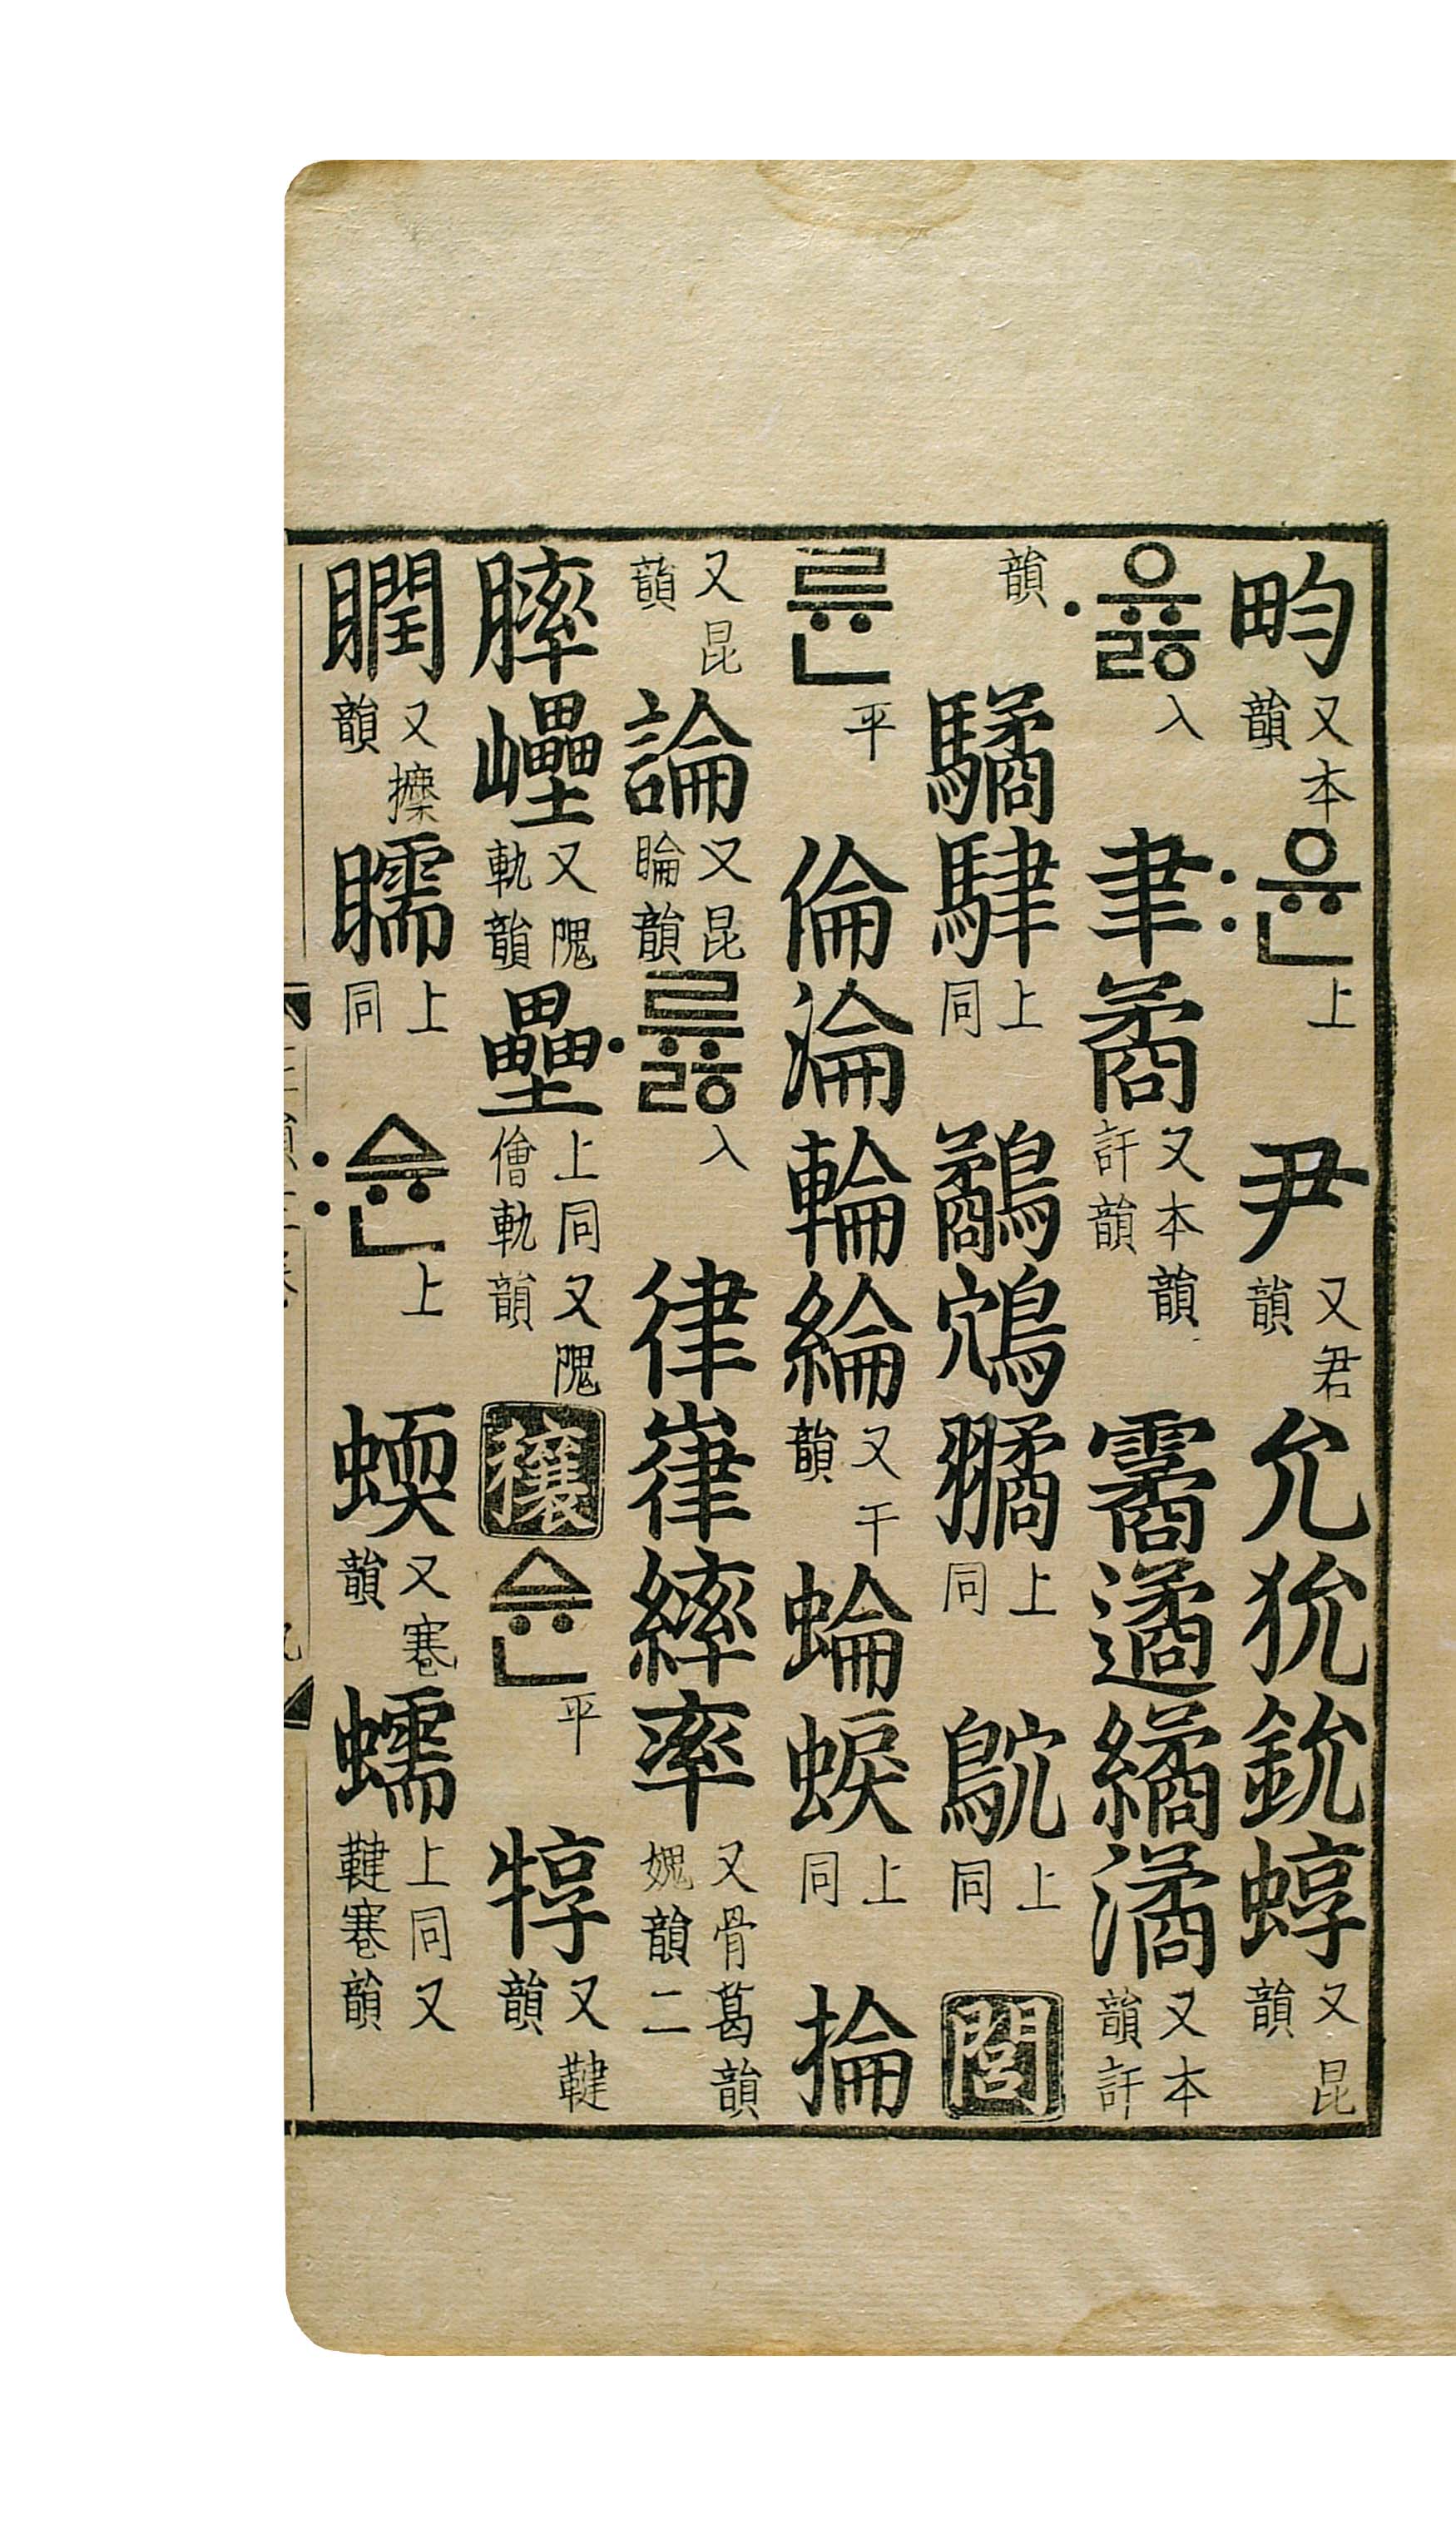 畇又本韻:윤上尹又君韻允狁鈗蜳又昆
韻
·유ᇙ入聿矞又本韻訐韻霱遹繘潏又本韻訐
韻驈䮇上同鷸鴥䎀上同鴪上同閭
륜平倫淪輪綸又干韻蜦蜧上同掄
又昆韻論又昆睔韻·류ᇙ入律嵂繂率又骨葛韻媿韻二
膟又隗軌韻壘上同又隗儈軌韻穰ᅀᅲᆫ平犉又鞬韻
瞤又韻上同:ᅀᅲᆫ上蝡又寋韻蠕上同又鞬寋韻